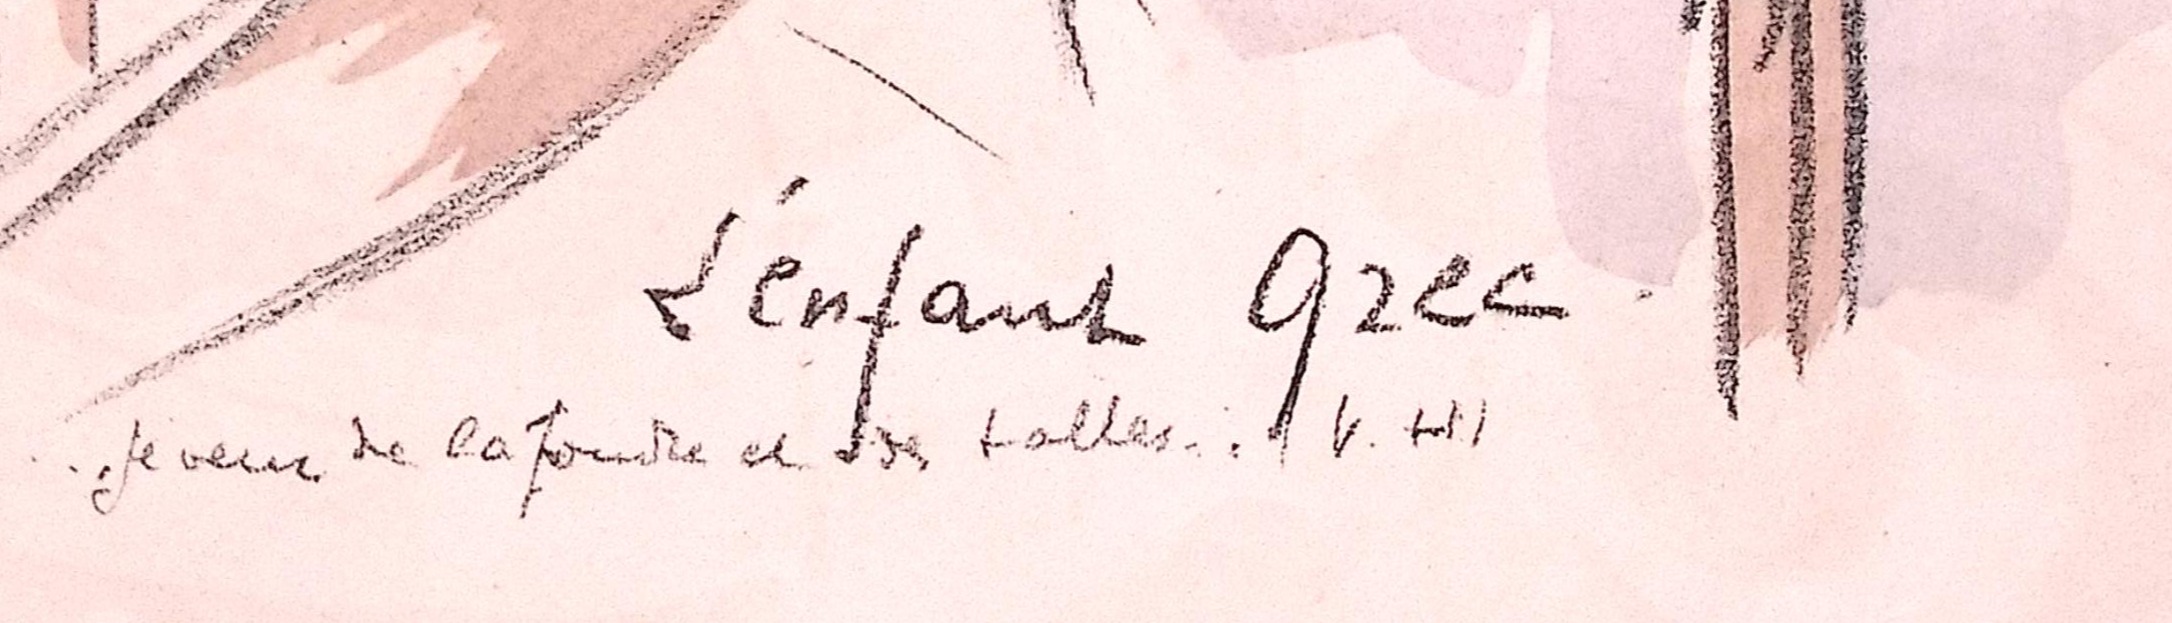 L'enfant grec
...je veux de la poudre et des balles... V. H